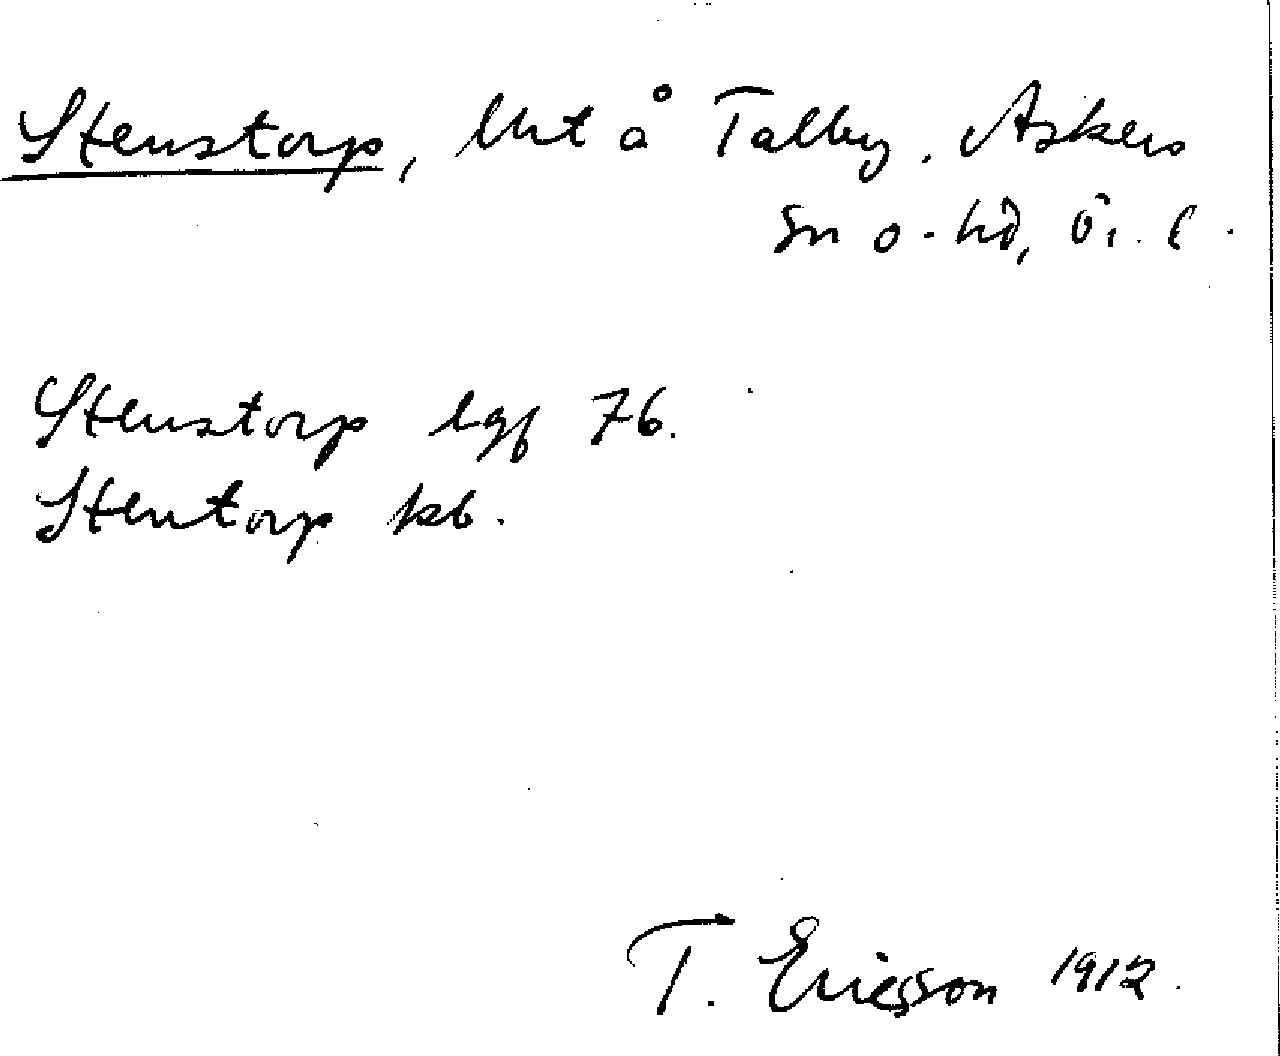 Stenstorp, lht å Talby, Askers
sn o. hd, Ör. l.
Stenstorp lgf 76.
Stentorp kb.
T. Ericsson 1912.